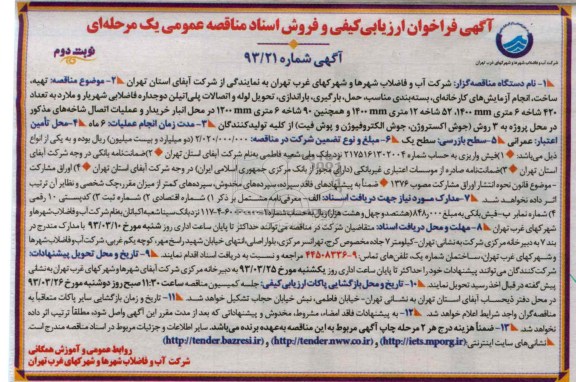 آگهی فراخوان ارزیابی‌کیفی و فروش اسناد مناقصه عمومی یک مرحله‌ای
نوبت دوم
آگهی شماره ۹۳/۲۱
شرکت آب و فاضلاب شهرها و شهرکهای غرب تهران
۱- نام دستگاه مناقصه‌گزار: شرکت آب و فاضلاب شهرها و شهرکهای غرب تهران به نمایندگی از شرکت آبفای استان تهران ۲- موضوع مناقصه: تهیه،
ساخت، انجام آزمایش‌های کارخانه‌ای، بسته‌بندی مناسب، حمل، بارگیری، باراندازی، تحویل لوله و اتصالات پلی‌اتیلن دوجداره فاضلابی شهریار و ملارد به تعداد
۴۲۰ شاخه ۶ متری ۱۴۰۰ mm، ۵۲ شاخه ۱۲ متری ۱۴۰۰ mm و همچنین ۹۰ شاخه ۶ متری ۱۲۰۰ mm در محل انبار خریدار و عملیات اتصال شاخه‌های مذکور
در محل پروژه به ۳ روش (جوش اکستروژن، جوش الکتروفیوژن و پوش فیت) از کلیه تولیدکنندگان ۳- مدت زمان انجام عملیات: ۶ ماه ۴- محل تأمین
اعتبار: عمرانی ۵- سطح بازرسی: سطح یک ۶- مبلغ و نوع تضمین شرکت در مناقصه: ۲/۰۲۰/۰۰۰/۰۰۰ (دو میلیارد و بیست میلیون) ریال بوده و به یکی از انواع
ذیل می‌باشد: ۱) فیش واریزی به حساب شماره ۲۱۷۵۱۶۱۳۰۲۰۰۴ نزد بانک ملی شعبه فاطمی به‌نام شرکت آبفای استان تهران ۲) ضمانتنامه بانکی در وجه شرکت آبفای
استان تهران ۳) ضمانتنامه صادره از موسسات اعتباری غیربانکی (دارای مجوز از بانک مرکزی جمهوری اسلامی ایران) در وجه شرکت آبفای استان تهران ۴) اوراق مشارکت
موضوع قانون نحوه انتشار اوراق مشارکت مصوب ۱۳۷۶ ضمناً به پیشنهادهای فاقد سپرده، سپرده‌های مخدوش، سپرده‌های کمتر از میزان مقرر، چک شخصی و نظایر آن ترتیب
اثر داده نخواهد شد. ۷- مدارک مورد نیاز جهت دریافت اسناد: الف- معرفی‌نامه مشتمل بر ذکر ۱) شماره اقتصادی ۲) شماره ثبت ۳) کدپستی ۱۰ رقمی
۴) شماره نمابر
شهرکهای غرب تهران ۸- مهلت و محل دریافت اسناد: متقاضیان شرکت در مناقصه می‌توانند حداکثر تا پایان ساعت اداری روز شنبه مورخ ۹۳/۰۳/۱۰ با مدارک مندرج در
بند ۷ به دبیرخانه مرکزی شرکت به نشانی تهران-کیلومتر ۷ جاده مخصوص کرج، تهرانسر مرکزی، بلوار اصلی، انتهای خیابان شهید راسخ مهر، کوچه یکم غربی، شرکت آب و فاضلاب شهرها
و شهرکهای غرب تهران، ساختمان شماره یک، تلفن‌های تماس: ۹-۴۴۵۰۸۳۳۶ مراجعه و نسبت به دریافت اسناد اقدام نمایند ۹- تاریخ و محل تحویل پیشنهادات:
شرکت‌کنندگان می‌توانند پیشنهادات خود را حداکثر تا پایان ساعت اداری روز یکشنبه مورخ ۹۳/۰۳/۲۵ به دبیرخانه مرکزی شرکت آبفای شهرها و شهرکهای غرب تهران به‌نشانی
پیش‌گفته در قبال اخذ رسید تحویل نمایند ۱۰- تاریخ و محل بازگشایی پاکات ارزیابی کیفی: جلسه کمیسیون مناقصه ساعت ۱۱:۳۰ صبح روز دوشنبه مورخ ۹۳/۰۳/۲۶
در محل دفتر ذیحساب آبفای استان تهران به نشانی تهران- خیابان فاطمی، نبش خیابان حجاب تشکیل خواهد شد. ۱۱- تاریخ و زمان بازگشایی سایر پاکات متعاقباً به
مناقصه‌گران واجد شرایط اعلام خواهد شد. ۱۲- به پیشنهادات فاقد امضاء، مشروط، مخدوش و پیشنهاداتی که بعد از مدت مقرر این آگهی واصل شود، مطلقاً ترتیب اثر داده
نخواهد شد. ۱۳- ضمناً هزینه درج هر ۲ مرحله چاپ آگهی مربوط به این مناقصه به‌عهده برنده می‌باشد. سایر اطلاعات و جزئیات مربوط در اسناد مناقصه مندرج است.
نشانی‌های سایت اینترنتی: (http://iets.mporg.ir) و (http://tender.nww.co.ir) و (http://tender.bazresi.ir)
روابط عمومی و آموزش همگانی
شرکت آب و فاضلاب شهرها و شهرکهای غرب تهران